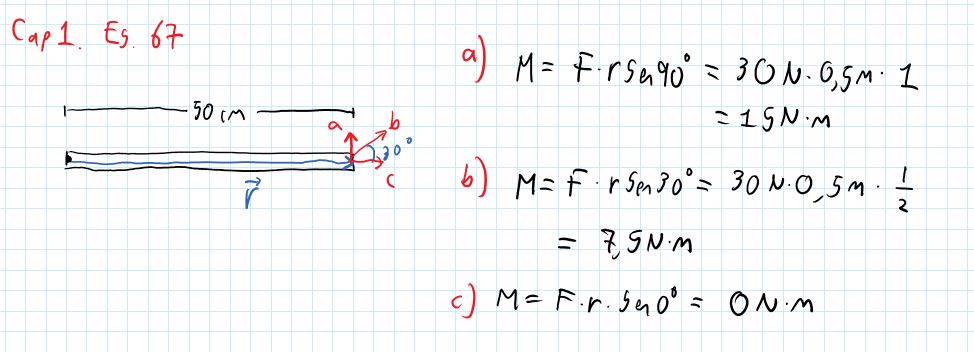 Cap 1. Es. 67
50 cm
a
b
30°
c
r
a) M = F·r sen 90° = 30 N·0,5 m·1
= 15 N·m
b) M = F·r sen 30° = 30 N·0,5 m·1/2
= 7,5 N·m
c) M = F·r·sen 0° = 0 N·m